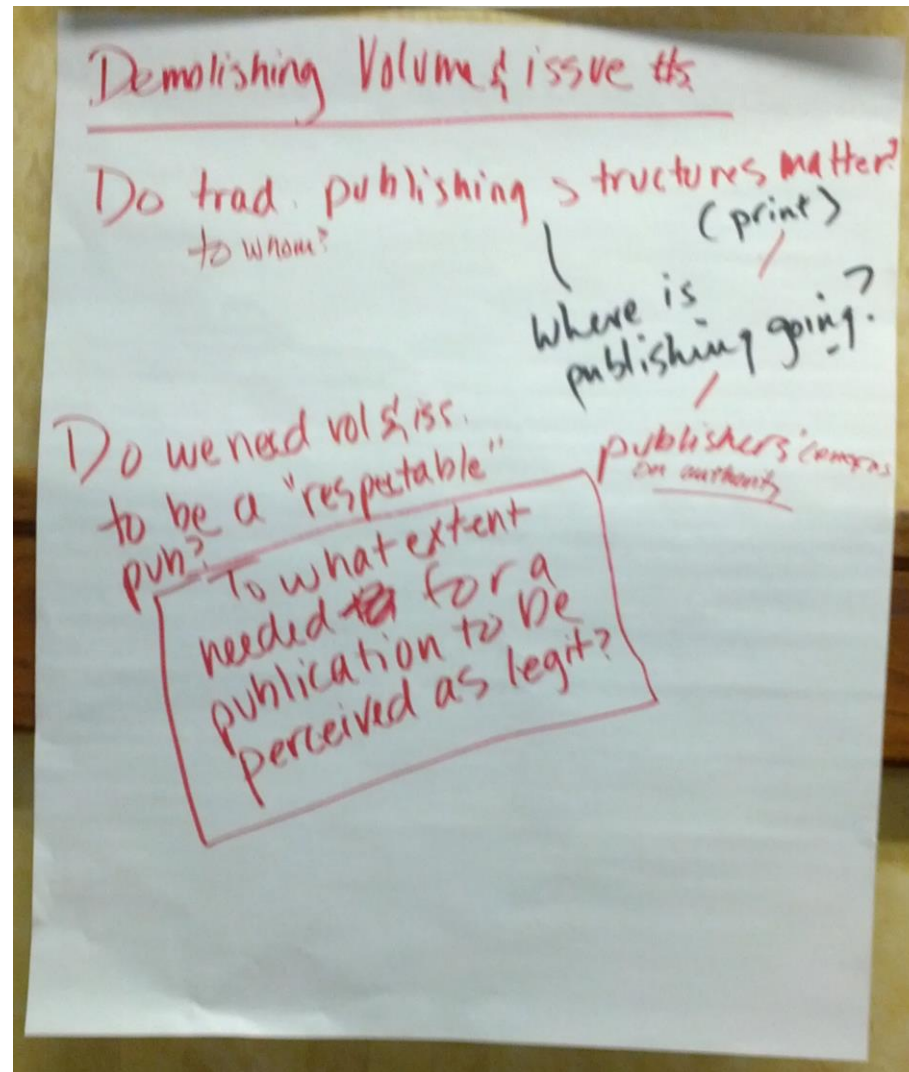 Demolishing Volume & issue #s
Do trad. publishing structures matter?
to whom?
(print)
Where is
publishing going?
publishers'
on authority
Do we need vol & iss.
to be a "respectable"
pub?
To what extent
needed for a
publication to be
perceived as legit?